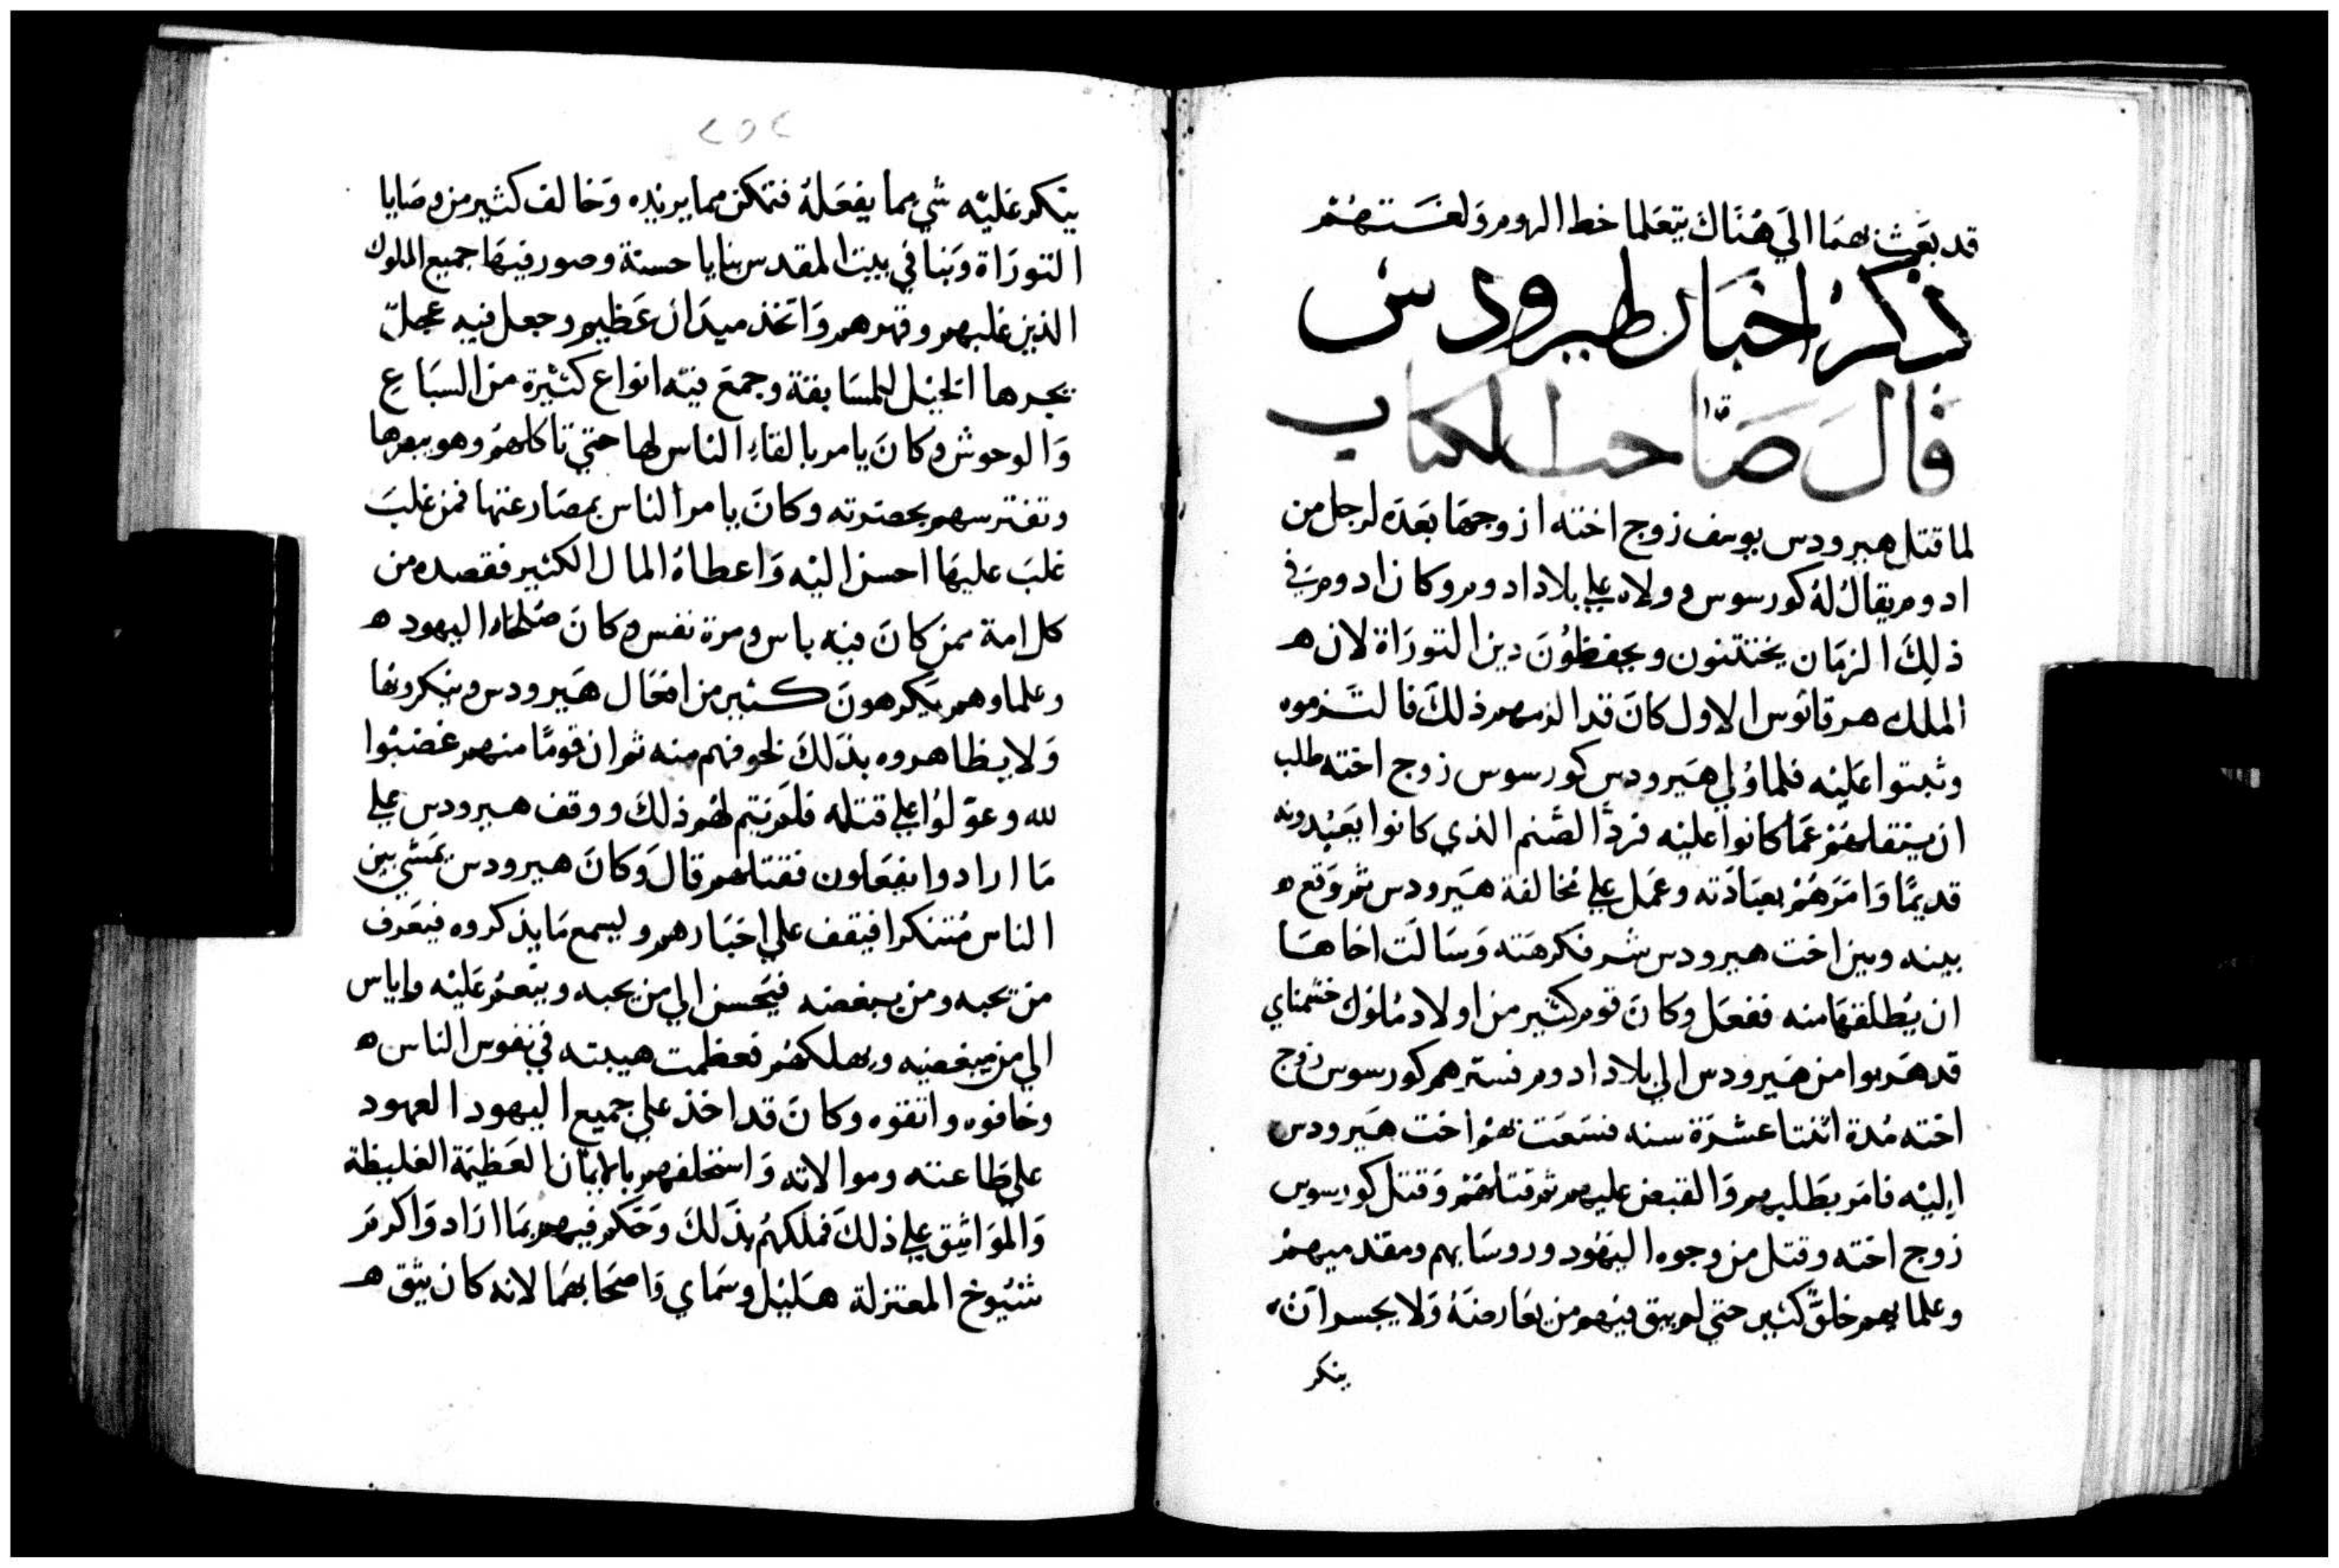 قد بعث بهما الي هناك يتعلما خط الروم ولغتهم
ذكر اخبار طيرودس
قال صاحب الكتاب
لما قتل هيرودس يوسف زوج اخته ازوجها بعده لرجل من
ادوم يقال له كورسوس وولاه علي بلاد ادوم وكان ادوم في
ذلك الزمان يختتنون ويحفظون دين التوراة لان ه
الملك هرقانوس الاول كان قد الزمهم ذلك فالتزموه
وثبتوا عليه فلما ولي هيرودس كورسوس زوج اخته طلب
ان ينقلهم عما كانوا عليه فرد الصنم الذي كانوا يعبدونه
قديما وامرهم بعبادته وعمل علي مخالفة هيرودس ثم وقع ه
بينه وبين اخت هيرودس شر فكرهته وسالت اخاها
ان يطلقها منه ففعل وكان قوم كثير من اولاد ملوك حشمناي
قد هربوا من هيرودس الي بلاد ادوم فسترهم كورسوس زوج
اخته مدة اثنتا عشرة سنه فسعت بهم اخت هيرودس
اليه فامر بطلبهم والقبض عليهم ثم قتلهم وقتل كورسوس
زوج اخته وقتل من وجوه اليهود وروسايهم ومقدميهم
وعلمايهم خلق كثير حتي لم يبق فيهم من يعارضه ولا يجسر ان
ينكر
٢٥٢
ينكر عليه شي مما يفعله فتمكن مما يريده وخالف كثير من وصايا
التوراة وبنا في بيت المقدس بنايا حسنة وصور فيها جميع الملوك
الذين غلبهم وقهرهم واتخذ ميدان عظيم وجعل فيه عجل
يجرها الخيل للمسابقة وجمع فيه انواع كثيرة من السباع
والوحوش وكان يامر بالقاء الناس لها حتي تاكلهم وهو يبصرها
وتفترسهم بحضرته وكان يامر الناس بمصارعتها فمن غلب
غلب عليها احسن اليه واعطاه المال الكثير فقصده من
كل امة ممن كان فيه باس ومرة نفس وكان صلحاء اليهود ه
وعلماوهم يكرهون كثير من افعال هيرودس وينكرونها
ولا يظاهروه بذلك لخوفهم منه ثم ان قوما منهم غضبوا
لله وعولوا علي قتله فلم يتم لهم ذلك ووقف هيرودس علي
ما ارادوا يفعلون فقتلهم قال وكان هيرودس يمشي بين
الناس متنكرا فيقف علي اخبارهم ويسمع ما يذكروه فيعرف
من يحبه ومن يبغضه فيحسن الي من يحبه وينعم عليه واياس
الي من يبغضه ويهلكهم فعظمت هيبته في نفوس الناس ه
وخافوه واتقوه وكان قد اخذ علي جميع اليهود العهود
علي طاعته وموالاته واستحلفهم بالايمان العظيمة الغليظة
والمواثيق علي ذلك فملكهم بذلك وحكم فيهم بما اراد واكرم
شيوخ المعتزلة هليل وسماي واصحابهما لانه كان يثق ه